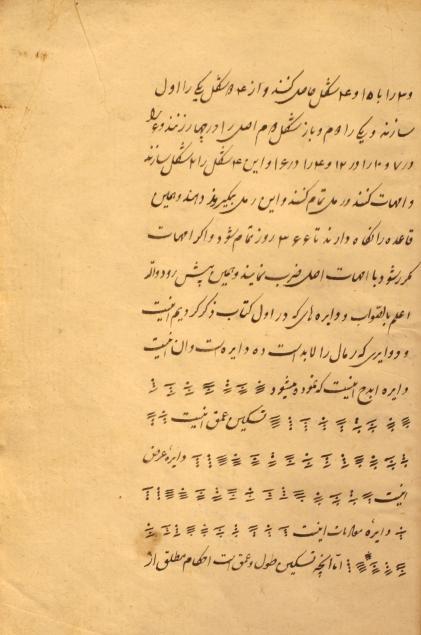 و ۳ را با ۱۵ و ۴ شکل حاصل کنند و از ۴ شکل یکی را اول
سازند و یکی را دوم و باز شکل دوم اصل را در چهار زنند و
در ۷ و ۱۰ را در ۱۲ و ۱۴ را در ۱۶ و این ۴ شکل را ۲ شکل سازند
و امهات کنند و رمل تمام کنند و این رمل بیکروز دهند و همین
قاعده را نگاه دارند تا ۳۶۶ روز تمام شود و اگر امهات
مکرر شود با امهات اصل ضرب نمایند و همین پیش رود والله
اعلم بالصواب و دایره های که در اول کتاب ذکر کردیم اینست
و دوایری که رمال را لابد است ده دایره است و آن اینست
دایره ابدح اینست که نموده میشود
تسکین عمق اینست
دایره عرض
اینست
دایره اینست
اما آنچه تسکین طول و عمق است احکام مطلق از